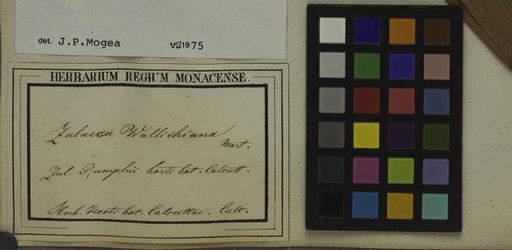 det. J.P.Mogea VII 1975
HERBARIUM REGIUM MONACENSE.
Zalacca Wallichiana
Mart.
Zal. Rumphii horti bot. Calcutt.
Herb. Horti bot. Calcuttae. Cult.